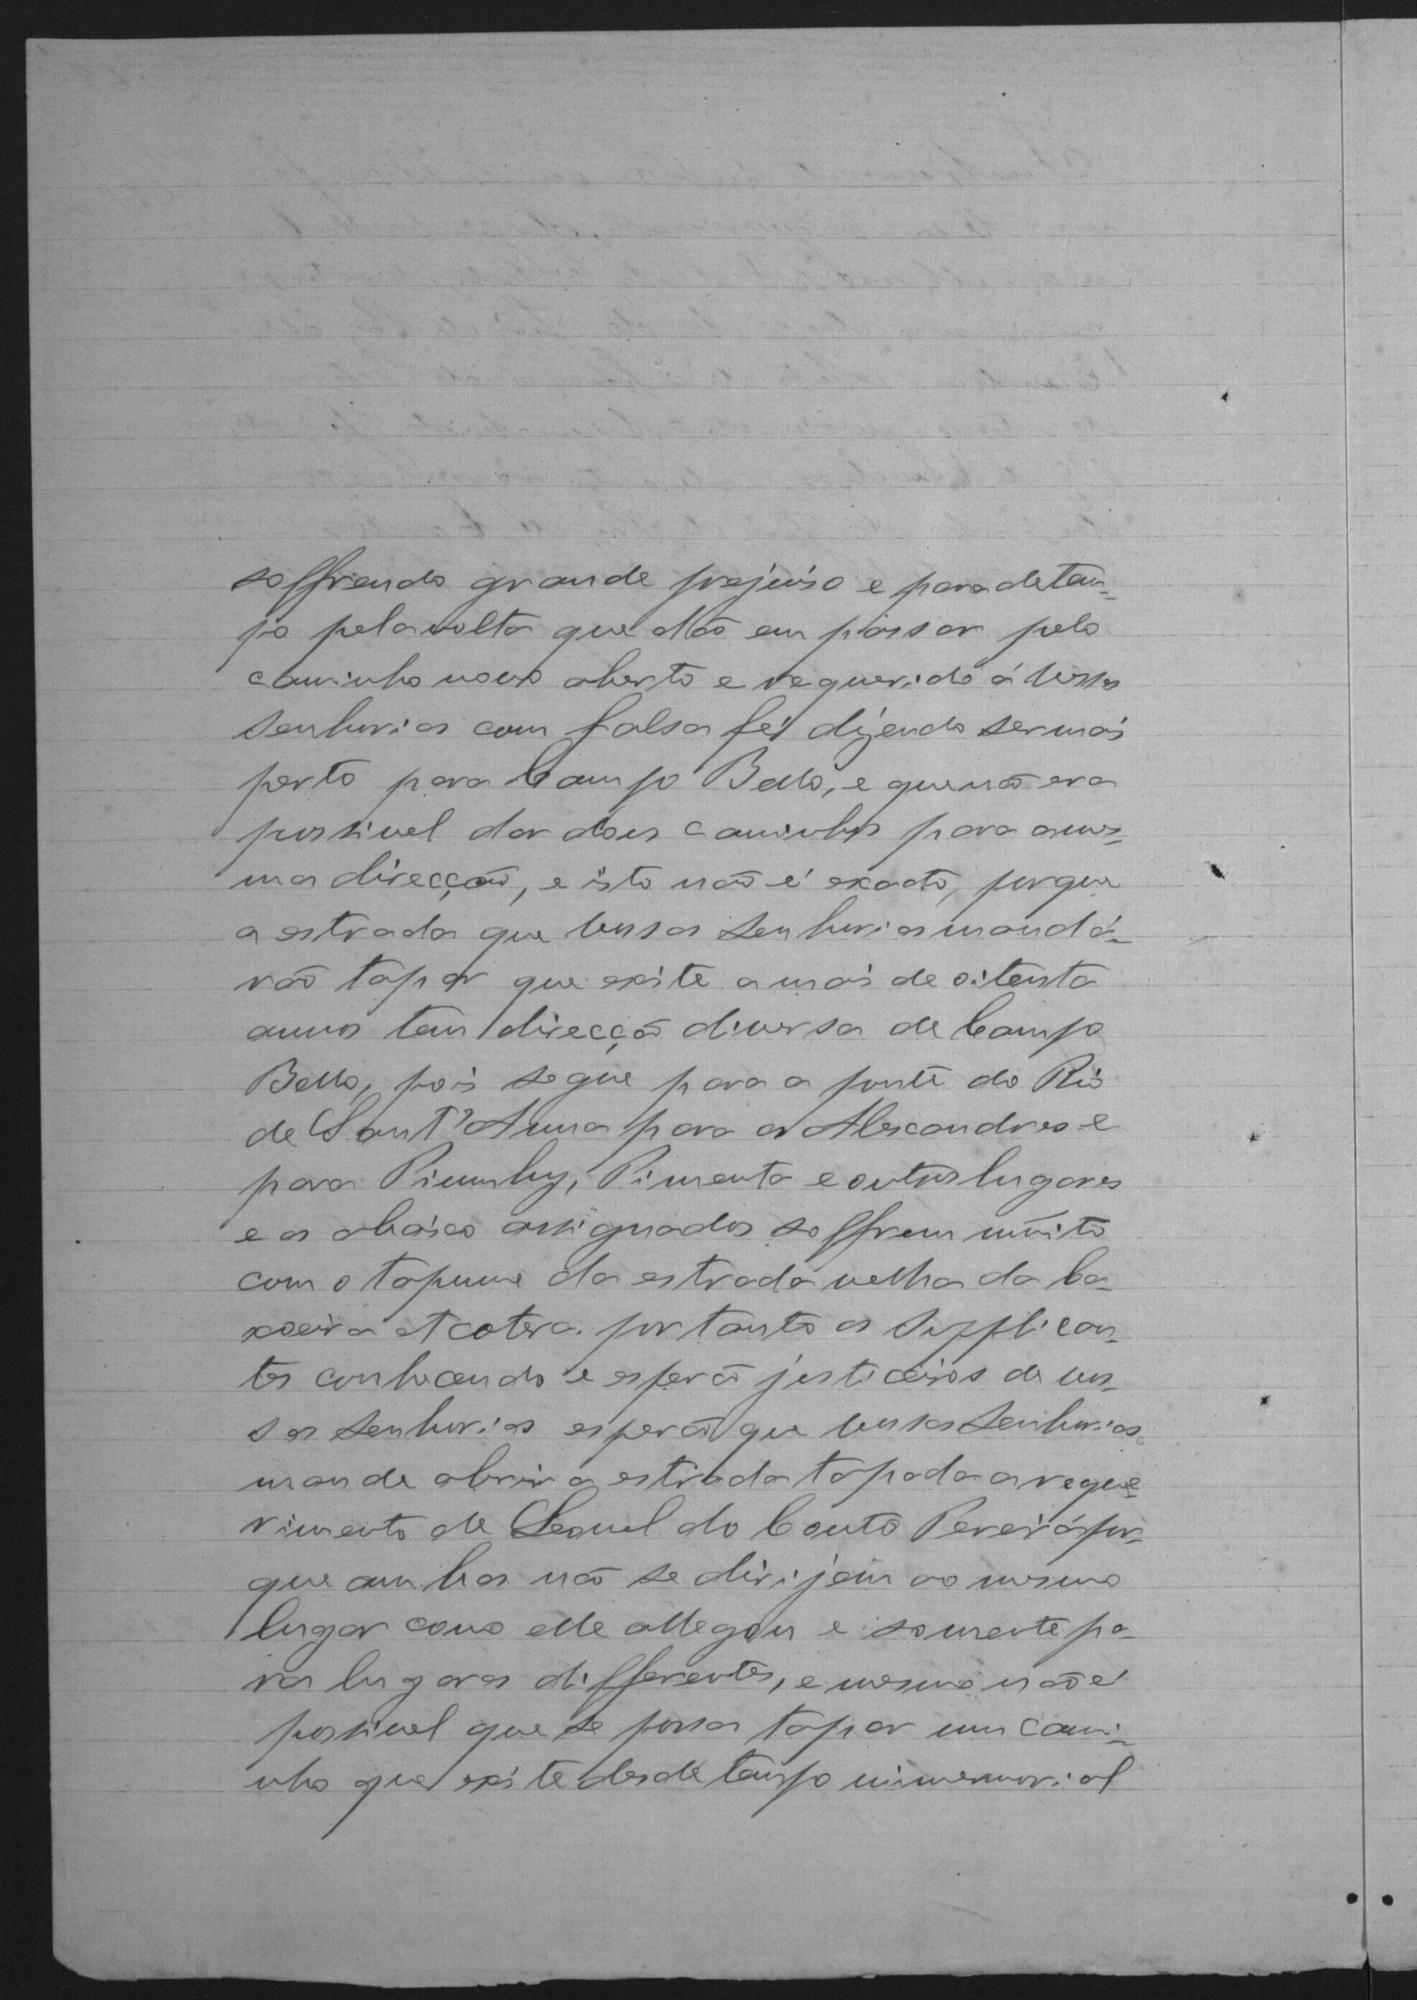 soffrendo grande prejuiso e para de tem-
po pela volta que dão em passar pelo
caminho novo aberto e requerido á Vossas
Senhorias com falsa fé, dizendo ser mais
perto para Campo Bello, e que não era
possivel dar dous caminhos para a mes-
ma direcção, e isto não é exacto, porque
a estrada que Vossas Senhorias mandá-
rão tapar que exite a mais de oitenta
annos tem direcçã diversa de Campo
Bello, pois segue para a ponte do Rio
de Sant'Anna para os Alexandres e
para Piumhy, Pimenta e outros lugares
e os abaixo assignados soffrem muito
com o tapume da estrada velha da Ca-
xoeira et cetera. portanto os Supplican-
tes conhecendo e esperão justiceiros de Vos-
sas Senhorias esperão que Vossas Senhorias
mande abrir a estrada tapada a reque-
rimento de Leonel do Couto Pereira por-
que ambas não se dirijem ao mesmo
lugar como elle allegou e somente pa-
ra lugares differentes, e mesmo não é
possivel que se possa tapar um cami-
nho que exite desde tempo inmemorial